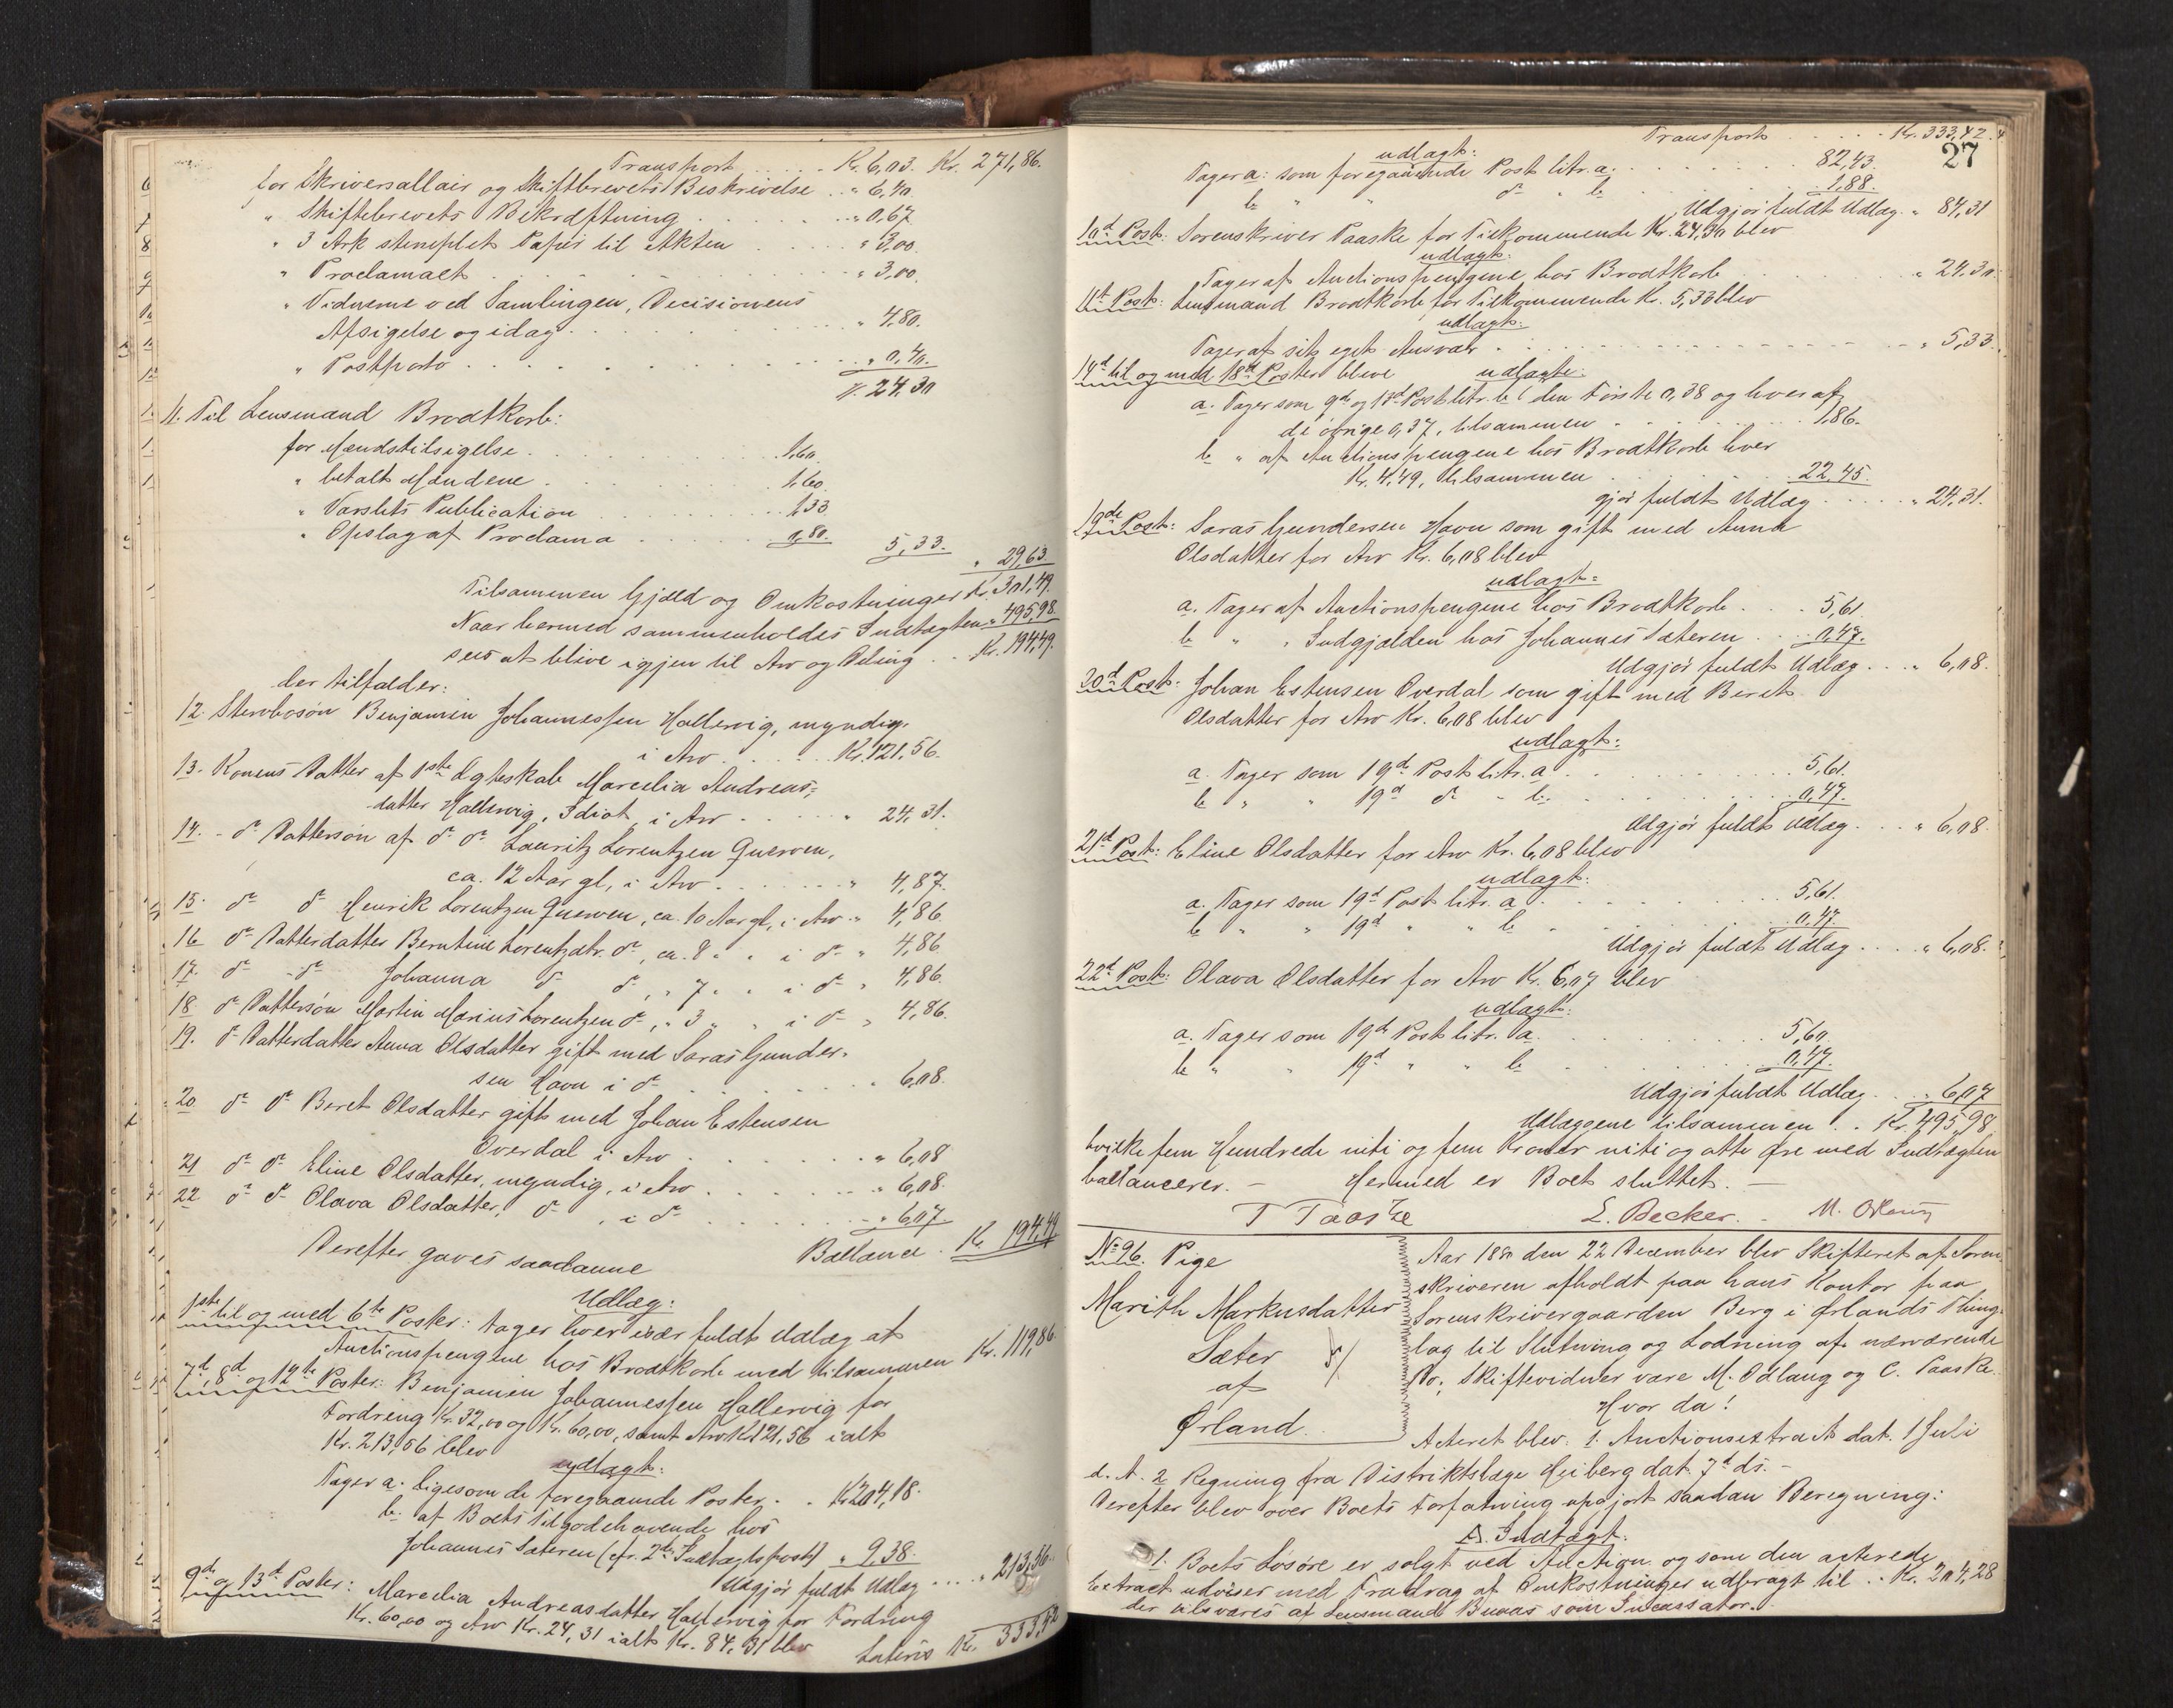 Transport . . . . Kr. 6,03. Kr. 271,86.
for Skriversallair og Skiftebrevets Beskrivelse . . " 6,40
" Skiftebrevets Bekræftning . . . . " 0,67
" 3 Ark stemplet Papir til Akten . . . . " 3,00.
" Proclamaet . . . . " 3,00.
" Vidnerne ved Samlingen, Decisionens
Afsigelse og idag . . . . " 4,80.
" Postporto . . . . " 0,40.
Kr. 24,30
11. Til Lensmand Brodtkorb:
for Mændstilsigelse . . . . 1,60.
" betalt Mændene . . . . 1,60.
" Varslets Publication . . . . 1,33
" Opslag af Proclama . . . . 0,80. 5,33. " 29,63
Tilsammen Gjæld og Omkostninger Kr. 301,49.
Naar hermed sammenholdes Indtægten " 495,98.
sees at blive igjen til Arv og Deling . . Kr. 194,49.
der tilfalder:
12. Stervbosøn Benjamin Johannessen Hallervig, myndig,
i Arv . . . . Kr. 121,56.
13. Konens Datter af 1ste Ægteskab Marcelia Andreas-
datter Hallervig, Idiot, i Arv . . . . " 24,31.
14. - do Dattersøn af do do Lauritz Lorentzen Querven,
ca. 12 Aar gl., i Arv . . . . " 4,87.
15. do do Henrik Lorentzen Querven, ca. 10 Aar gl., i Arv " 4,86.
16 do Datterdatter Berntine Lorentzdtr. do, ca. 8 " " i do " 4,86
17. do - do Johanna do do, " 7 " " i do " 4,86.
18 do Dattersøn Martin Marius Lorentzen do, " 3 " " i do " 4,86.
19. do Datterdatter Anna Olsdatter gift med Saras Gunder-
sen Havn i do . . . . " 6,08.
20 do do Beret Olsdatter gift med Johan Estensen
Overdal i Arv . . . . " 6,08
21 do do Eline Olsdatter, myndig, i Arv . . . . " 6,08.
22 do do Olava Olsdatter, do , i do . . . . " 6,07
Ballance . Kr. 194,49
Derefter gaves saadanne
Udlæg:
1ste til og med 6te Poster: tager hver især fuldt Udlæg af
Auctionspengene hos Brodtkorb med tilsammen Kr. 119,86.
7d, 8d og 12te Poster: Benjamin Johannessen Hallervig for
Fordring Kr. 32,00 og Kr. 60,00, samt Arv Kr. 121,56 ialt
Kr. 213,56 blev
udlagt:
Tager a. ligesom de foregaaende Poster . . Kr. 204,18.
b. af Boets Tilgodehavende hos
Johannes Sæteren (cfr. 2den Indtægtspost) " 9,38.
Udgjør fuldt Udlæg . . . . " 213,56.
9de og 13de Poster: Marcelia Andreasdatter Hallervig for Fordring
Kr. 60,00 og Arv Kr. 24,31 ialt Kr. 84,31 blev
Lateris Kr. 333,42
Transport . . . . Kr. 333,42.
27
udlagt:
Tager a: som foregaaende Post litr. a. . . . . 82,43.
b " " do b . . . . 1,88.
Udgjør fuldt Udlæg . " 84,31
10d Post: Sorenskriver Paaske for Tilkommende Kr. 24,30 blev
udlagt:
Tager af Auctionspengene hos Brodtkorb . . . . " 24,30.
11t Post: Lensmand Brodtkorb for Tilkommende Kr. 5,33 blev
udlagt:
Tager af sit eget Ansvar . . . . " 5,33.
14d til og med 18d Poster bleve udlagte:
a. Tager som 9de og 13d Post litr. b (den Første 0,38 og hver af
de øvrige 0,37, tilsammen . . . . 1,86.
b " af Auctionspengene hos Brodtkorb hver
Kr. 4,49, tilsammen . . . . 22,45.
gjør fuldt Udlæg . . . . " 24,31.
19de Post: Saras Gundersen Havn som gift med Anna
Olsdatter for Arv Kr. 6,08 blev
udlagt:
a. Tager af Auctionspengene hos Brodtkorb . . . 5,61
b " " Indgjælden hos Johannes Sæteren . . . 0,47.
Udgjør fuldt Udlæg . . . " 6,08.
20d Post: Johan Estensen Overdal som gift med Beret
Olsdatter for Arv Kr. 6,08 blev
udlagt:
a. Tager som 19de Post litr. a . . . . 5,61.
b " " 19d do - b . . . . 0,47.
Udgjør fuldt Udlæg . . . " 6,08.
21d Post: Eline Olsdatter for Arv Kr. 6,08 blev
udlagt:
a. Tager som 19d Post litr. a . . . . 5,61.
b " " 19d " " b . . . . 0,47.
Udgjør fuldt Udlæg . . . . " 6,08.
22d Post: Olava Olsdatter for Arv Kr. 6,07 blev
udlagt:
a. Tager som 19de Post litr. a . . . . 5,60.
b " " 19d " " b . . . . 0,47.
Udgjør fuldt Udlæg . . " 6,07
Udlæggene tilsammen . . Kr. 495,98.
hvilke fem Hundrede niti og fem Kroner niti og otte Øre med Indtægten
ballancerer. — Hermed er Boet sluttet. —
T Paaske L. Becker. M. Odlaug
No 96. Pige
Marith Markusdatter
Sæter
af
Ørland.
Aar 1880 den 22 December blev Skifteret af Soren-
skriveren afholdt paa hans Kontor paa
Sorenskrivergaarden Berg i Ørlands Thing-
lag til Slutning og Lodning af nærværende
Bo; Skiftevidner vare M. Odlaug og C. Paaske.
Hvor da!
Acteret blev: 1. Auctionsextract dat. 1 Juli
d. A. 2 Regning fra Distriktslæge Heiberg dat. 7d ds. -
Derefter blev over Boets Forfatning opgjort saadan Beregning:
A. Indtægt:
1. Boets Løsøre er solgt ved Auction og som den acterede
Extract udviser med Fradrag af Omkostninger udbragt til . . Kr. 204,28
der tilsvares af Lensmand som Incassator.